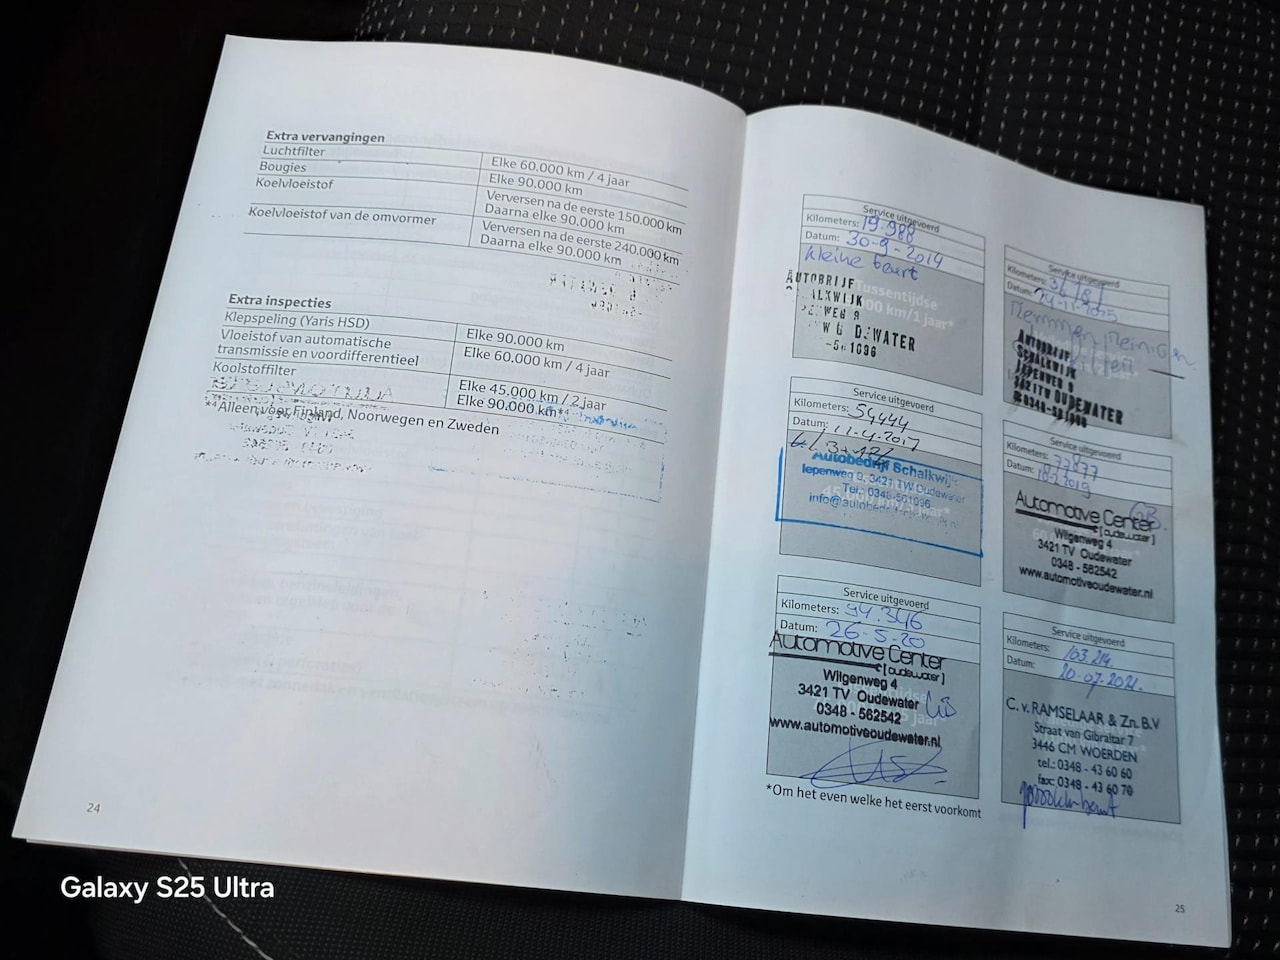 Extra vervangingen
Luchtfilter Elke 60.000 km / 4 jaar
Bougies Elke 90.000 km
Koelvloeistof Verversen na de eerste 150.000 km
Daarna elke 90.000 km
Koelvloeistof van de omvormer Verversen na de eerste 240.000 km
Daarna elke 90.000 km
Extra inspecties
Klepspeling (Yaris HSD) Elke 90.000 km
Vloeistof van automatische
transmissie en voordifferentieel Elke 60.000 km / 4 jaar
Koolstoffilter Elke 45.000 km / 2 jaar
Elke 90.000 km*⁴
*⁴Alleen voor Finland, Noorwegen en Zweden
24
Service uitgevoerd
Kilometers: 19.988
Datum: 30-9-2014
kleine beurt
Tussentijdse
000 km/1 jaar*
AUTOBRIJF
ALKWIJK
WEG 9
DEWATER
Service uitgevoerd
Kilometers:
Datum: 24-11-2015
Remmen Reinigen
AUTOBRIJF
SCHALKWIJK
IEPENWEG 9
3421TW OUDEWATER
0348-561996
Service uitgevoerd
Kilometers: 54444
Datum: 11-4-2017
Autobedrijf Schalkwijk
Iepenweg 9, 3421 TW Oudewater
Tel. 0348-561996
Service uitgevoerd
Kilometers: 77877
Datum: 18-2-2019
GB.
Automotive Center
[oudewater]
Wilgenweg 4
3421 TV Oudewater
0348 - 562542
www.automotiveoudewater.nl
Service uitgevoerd
Kilometers: 94.346
Datum: 26-5-20
Automotive Center
[oudewater]
Wilgenweg 4
3421 TV Oudewater
0348 - 562542
www.automotiveoudewater.nl
Service uitgevoerd
Kilometers: 103.214
Datum: 20-07-2021.
C. v. RAMSELAAR & Zn. B.V
Straat van Gibraltar 7
3446 CM WOERDEN
tel.: 0348 - 43 60 60
fax: 0348 - 43 60 70
*Om het even welke het eerst voorkomt
25
Galaxy S25 Ultra